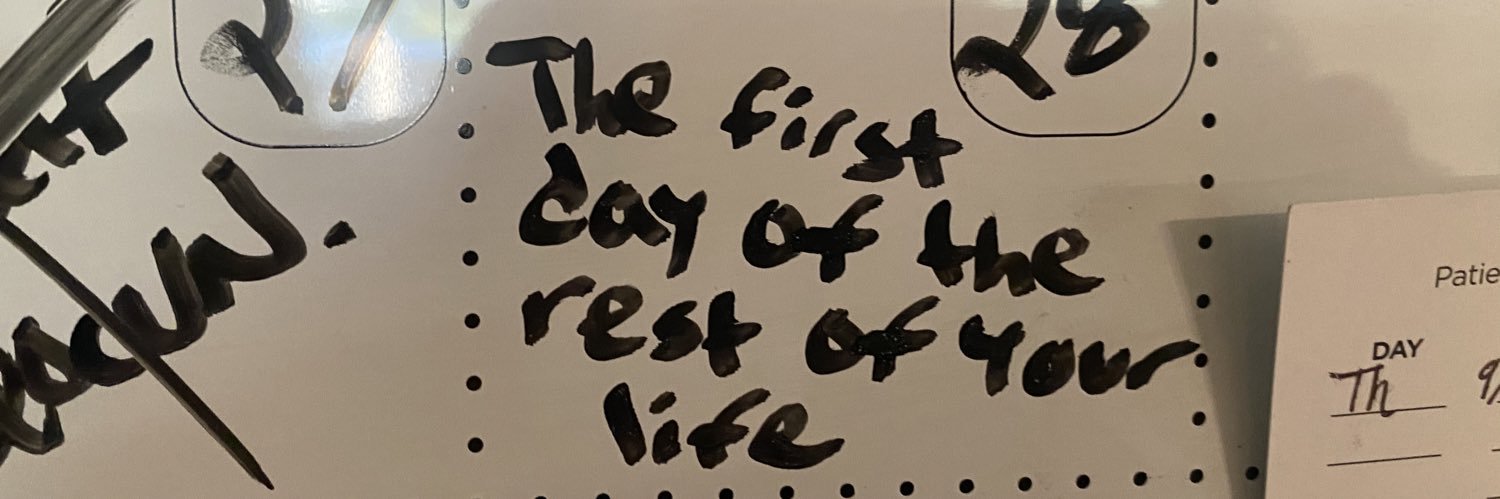 27
28
The first
day of the
rest of your
life
Patie
DAY
Th
9/